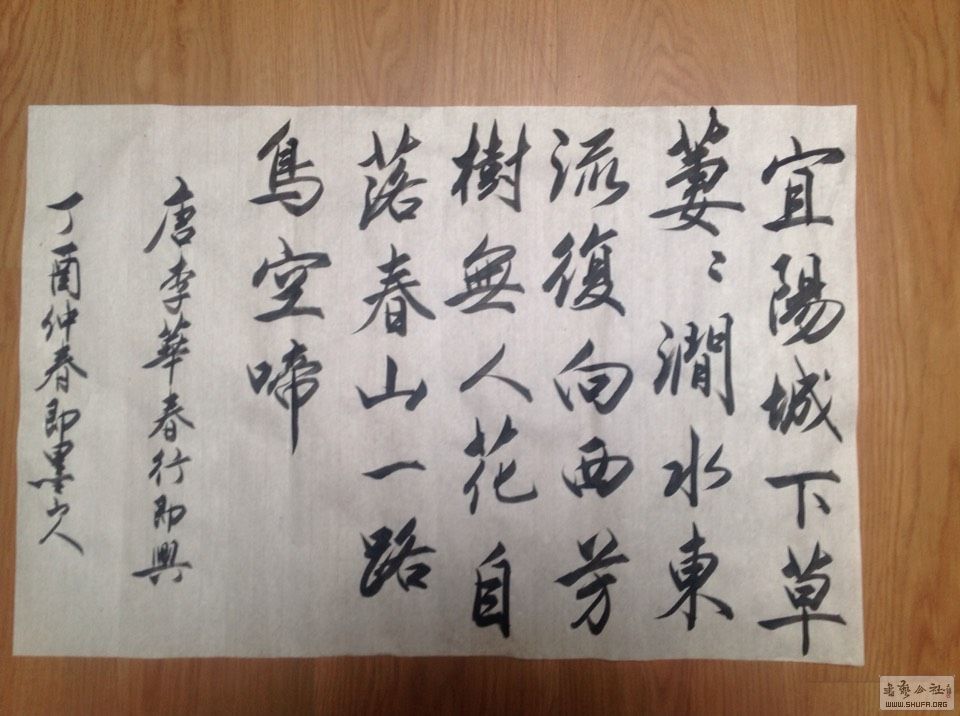 宜陽城下草
萋〻澗水東
流復向西芳
樹無人花自
落春山一路
鳥空啼
唐李華春行即興
丁酉仲春即墨山人
書藝公社
WWW.SHUFA.ORG